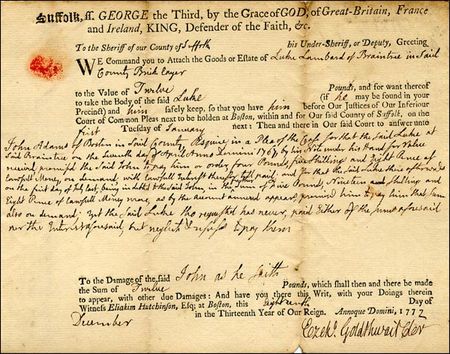 Suffolk, ss. GEORGE the Third, by the Grace of GOD, of Great-Britain, France
and Ireland, KING, Defender of the Faith, &c.
To the Sheriff of our County of Suffolk his Under-Sheriff, or Deputy, Greeting
WE Command you to Attach the Goods or Estate of Luke Lambard of Braintree in said
County Bricklayer
to the Value of Twelve Pounds, and for want thereof
to take the Body of the said Luke (if he may be found in your
Precinct) and him safely keep, so that you have him before Our Justices of Our Inferiour
Court of Common Pleas next to be holden at Boston, within and for Our said County of Suffolk, on the
first Tuesday of January next: Then and there in Our said Court to answer unto
John Adams of Boston in said County, Esquire in a Plea of the Case for that the said Luke at
said Braintree on the seventh day of Anno Domini 1767, by his Note under his hand for Value
received promised the said John to pay him or order four Pounds, five shillings and Eight Pence of
Lawfull Money on demand with Lawfull Interest till paid; and for that the said Luke there afterwards
on the first day of July last, being indebted to the said John, in the sum of five Pounds, Nineteen shillings and
Eight Pence of Lawfull Money more, as by the account annexed appears promised him to pay him that sum
also on demand; Yet the said Luke tho requested has never, paid either of the sums aforesaid
nor the Interest aforesaid but neglects & refuses to pay them
To the Damage of the said John as he saith
the Sum of Twelve Pounds, which shall then and there be made
to appear, with other due Damages: And have you there this Writ, with your Doings therein
Witness Eliakim Hutchinson, Esq; at Boston, this Day of
December in the Thirteenth Year of Our Reign. Annoque Domini, 1772
Ezekl Goldthwait Cler